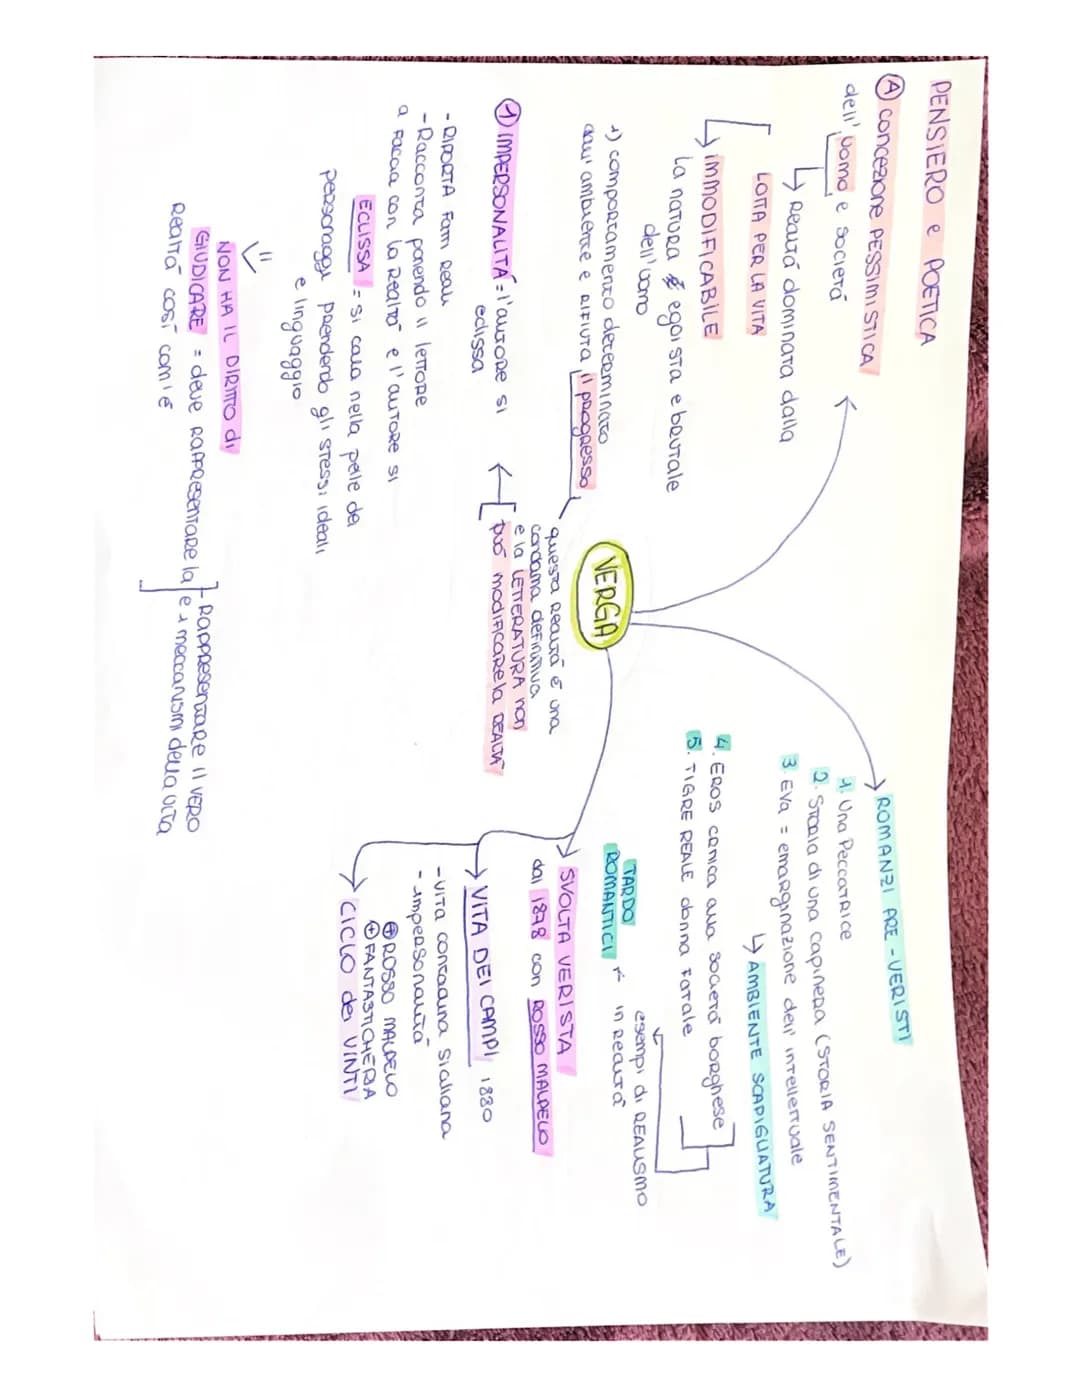 PENSIERO e POETICA
A CONCEZIONE PESSIMISTICA
dell' uomo e società
↳ Realtà dominata dalla
LOTTA PER LA VITA
→ IMMODIFICABILE
la natura è egoista e brutale
dell'uomo
1) comportamento determinato
dall'ambiente e RIFIUTA il progresso
questa Realtà é una
condanna definitiva
e la LETTERATURA non
può modificare la REALTÀ
1 IMPERSONALITÀ = l'autore si
eclissa
- RIPORTA Fatti Reali
- Racconta ponendo il lettore
a faccia con la Realtà e l'autore si
ECLISSA = si cala nella pelle dei
personaggi prendendo gli stessi ideali
e linguaggio
NON HA IL DIRITTO di
GIUDICARE = deve RAPPRESENTARE la
Realtà così com'è
- Rappresentare il VERO
e i meccanismi della vita
VERGA
ROMANZI PRE-VERISTI
1. Una Peccatrice
2. STORIA di una capinera (STORIA SENTIMENTALE)
3. Eva = emarginazione dell'intellettuale
↳ AMBIENTE SCAPIGLIATURA
4. EROS critica alla società borghese
5. TIGRE REALE donna Fatale
esempi di REALISMO
in Realtà
TARDO
ROMANTICI
SVOLTA VERISTA
dal 1878 con ROSSO MALPELO
VITA DEI CAMPI 1880
- vita contadina siciliana
- impersonalità
+ ROSSO MALPELO
+ FANTASTICHERIA
CICLO dei VINTI